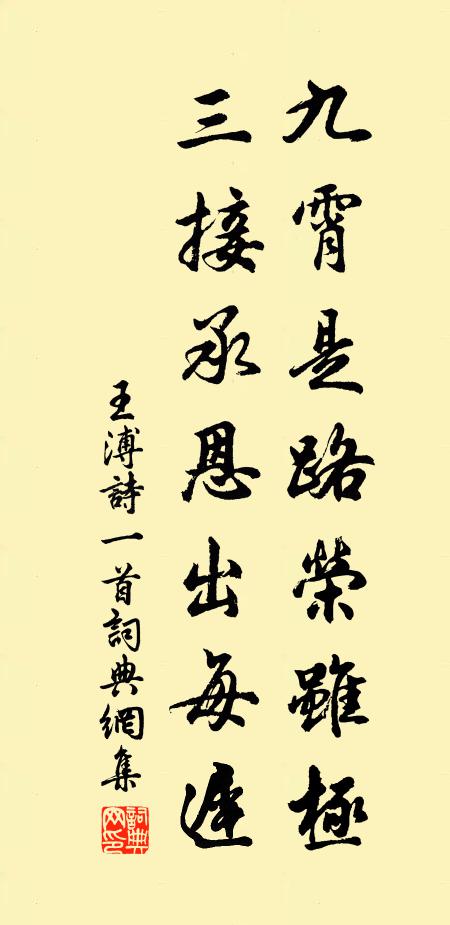 九霄是路榮雖極
三接承恩出每遲
王溥詩一首詞典網集
詞典網印